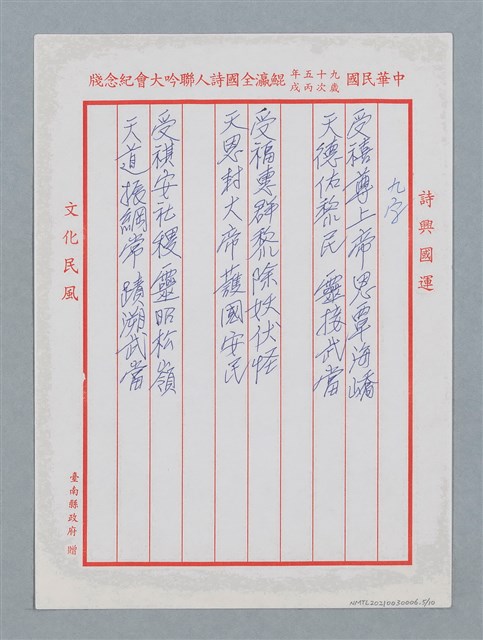 中華民國九十五年歲次丙戌鯤瀛全國詩人聯吟大會紀念牋
詩興國運
九字
受禧尊上帝恩覃海嶠
天德佑黎民 靈接武當
受福專群黎除妖伏怪
天恩封大帝護國安民
受祺安社稷靈昭松嶺
天道振綱常蹟溯武當
文化民風
臺南縣政府 贈
NMTL20210030006.5/10